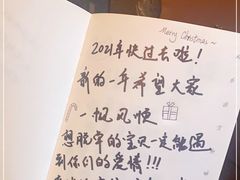 Merry Christmas~
2021年快过去啦！
新的一年希望大家
一帆风顺
想脱单的宝贝一定能遇
到你们的爱情!!!